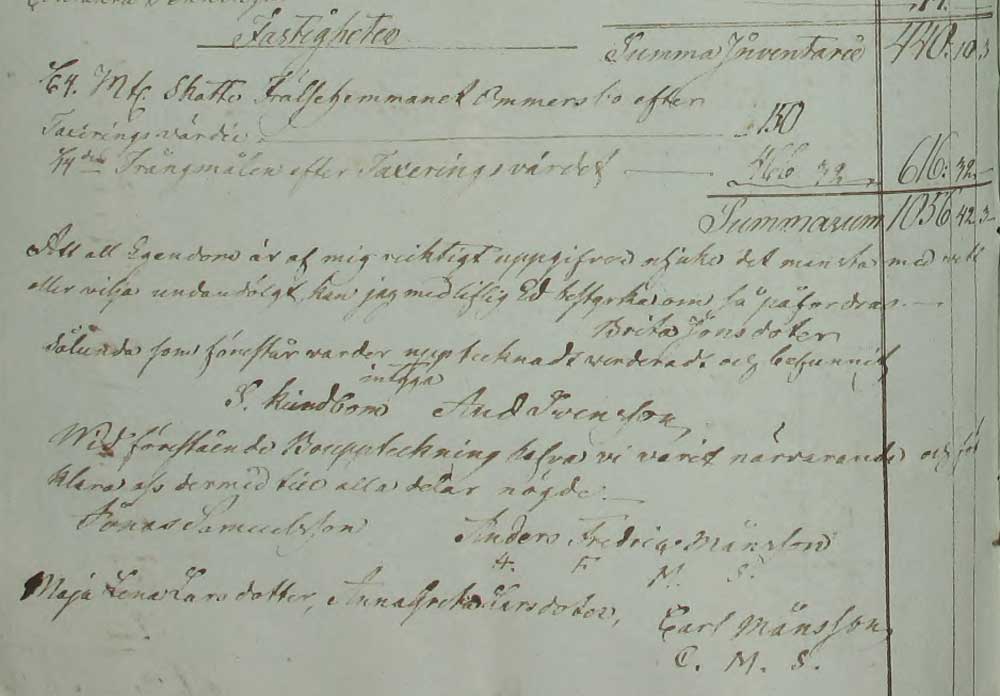 Fastigheter
Summa Inventarie 440: 10 3
Mtl. Skatte Frälsehemmanet Emmersbo efter
Taxerings värdie 150
Trångmålen efter Taxerings värdet 466 32 616: 32
Summarum 1056 42 3
Att all Egendom är af mig richtigt uppgifven det minsta med vett
eller vilja undandölgt, kan jag med liflig Ed bestyrka om så påfordras
Brita Jonsdoter
Sålunda som förestår warder upptecknadt werderadt och befunnit
intyga
And Svensson
Wid förestående Bouppteckning hafva vi varit närvarande och för
klara oss dermed till alla delar nögde
Jonas Samuelsson Anders Fredric Månsson
A. F. M. S.
Maja Lena Larsdotter, Anna Greta Larsdoter,
Carl Månsson
C. M. S.